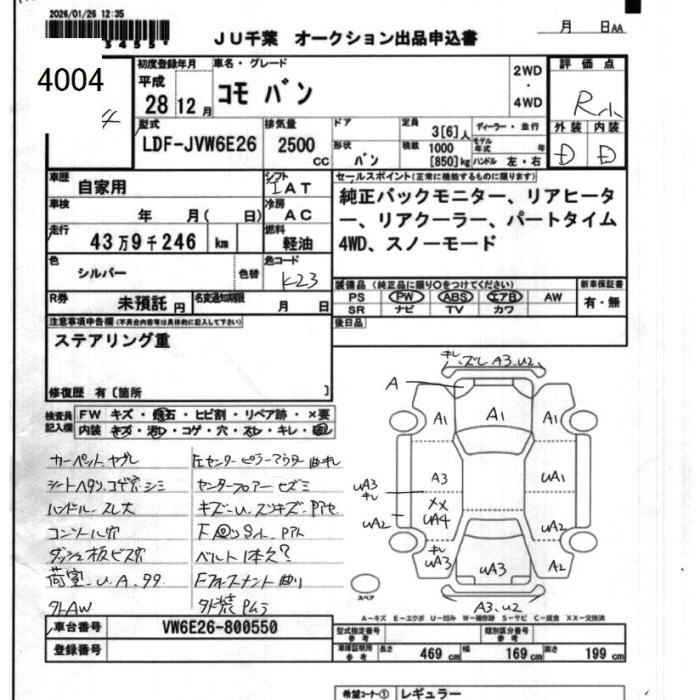 2026/01/26 12:35
3455
月 日AA
JU千葉 オークション出品申込書
4004
4
初度登録年月 車名・グレード
平成
28 12月
コモ バン
2WD
・
4WD
評価点
R
型式
LDF-JVW6E26
排気量
2500
cc
ドア
形状
バン
定員
3[6]人
積載
1000
[850]kg
ディーラー・並行
モデル
年式 年
ハンドル 左・右
外装 内装
D D
車歴
自家用
シフト
IAT
車検
年 月( 日)
冷房
AC
走行
43万9千246 km
燃料
軽油
色
シルバー
色替
色コード
K23
R券
未預託 円
名変通知期限
月 日
セールスポイント(正常に機能するものに限ります)
純正バックモニター、リアヒータ
ー、リアクーラー、パートタイム
4WD、スノーモード
装備品 (純正品に限り○をつけてください)
PS PW ABS エアB AW
SR ナビ TV カワ
新車保証書
有・無
後日品
注意事項申告欄(不具合内容等は具体的に記入して下さい)
ステアリング重
修復歴 有〔箇所 〕
検査員
記入欄
FW キズ・飛石・ヒビ割・リペア跡・×要
内装 キズ・汚レ・コゲ・穴・スレ・キレ・臭い
カーペットヤブレ
シートヘタリ、コゲ穴、シミ
ハンドル、スレ大
コンソール穴
ダッシュ板ビス穴
荷室、U、A、99
外AW
左センターピラーアウター曲キレ
センターフロアーヒズミ
ベルト1本欠?
キレ、ズレ A3、U2
A
A1
A1
A1
A3
UA1
UA3
キレ
XX
UA4
UA2
UA2
キレ
UA3
UA3
A2
A3、U2
スペア
A－キズ E－エクボ U－凹み W－補修跡 S－サビ C－腐食 XX－交換済
車台番号
VW6E26-800550
登録番号
型式指定番号
参考
類別区分番号
参考
車庫証明用
参考
長さ 469 cm
幅 169 cm
高さ 199 cm
希望コーナー① レギュラー